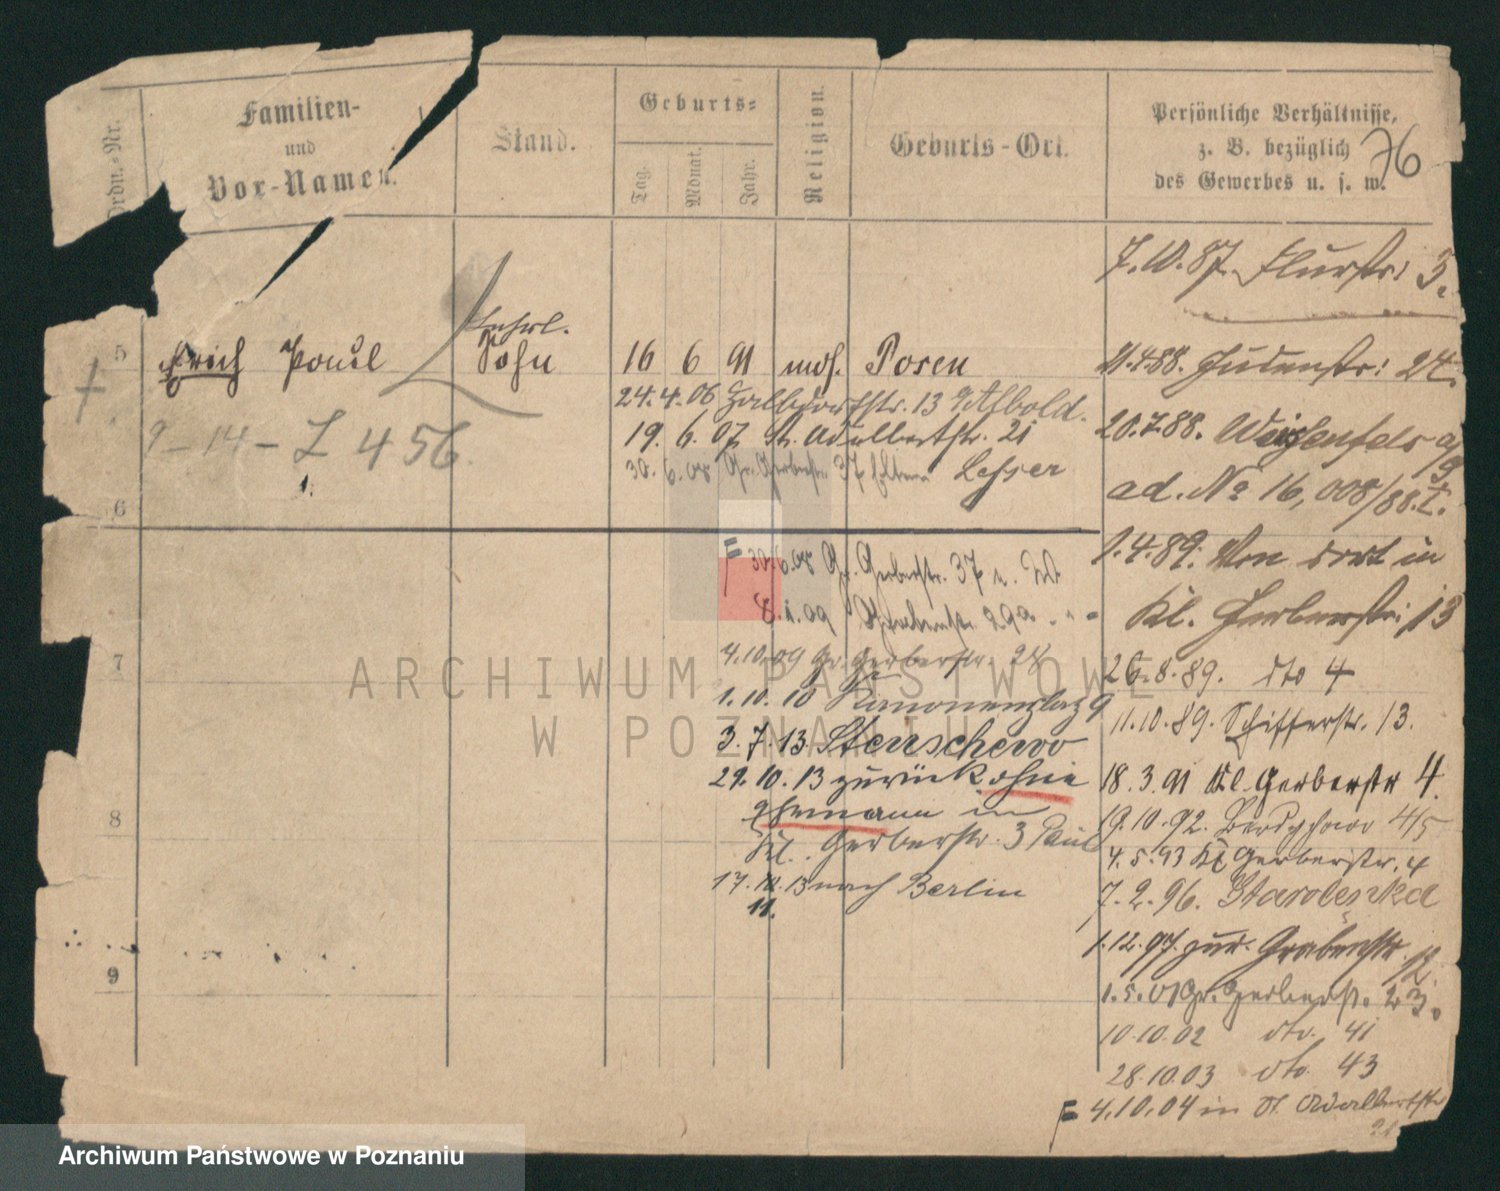 Ordn.-Nr.
Familien-
und
Vor-Namen.
Stand.
Geburts-
Tag.
Monat.
Jahr.
Religion.
Geburts-Ort.
Persönliche Verhältnisse,
z. B. bezüglich
des Gewerbes u. s. w.
76
5
Erich Paul
Sohn
16 6 91 mos. Posen
24.4.06 13
19. 6. 07 St. Adalbertstr. 21
30. 6. 08 Gr. Gerberstr. 37 Lesser
9-14- L 456
6
30.6.08 Gr. Gerberstr. 37
8.1.09 29a
7
4.10.09 Gr. Gerberstr. 28
1. 10. 10 Kanonenplatz 9
3. 7. 13 Stenschewo
29. 10. 13 zurück ohne
Ehemann in
8
Kl. Gerberstr. 3 Paul
17. 10. 13 nach Berlin
11.
9
7.10.87. Flurstr: 3.
11.4.88. Judenstr: 24.
20.7.88. Weißenfels a/S
ad. No 16,008/88.I.
1.4.89. Von dort in
Kl. Gerberstr: 13
26.8.89. dto 4
11.10.89. Schifferstr. 13.
18. 3. 91 Kl. Gerberstr 4.
19.10.92. 4/5
4.5.93 Kl Gerberstr. 4
7. 2. 96. Staroleska
1.12.97. zur. Grabenstr. 12.
1.5.01 Gr. Gerberstr. 23.
10.10.02 dto. 41
28.10.03 dto. 43
4.10.04 in St. Adalbertstr
21
ARCHIWUM PAŃSTWOWE
W POZNANIU
Archiwum Państwowe w Poznaniu